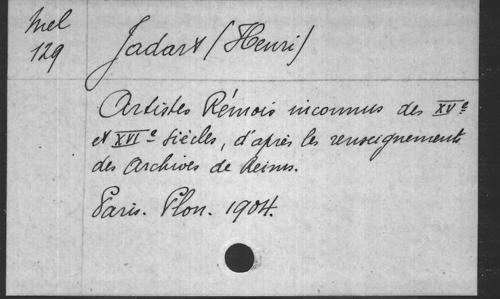 Mel
129
Jadart (Henri)
Artistes Rémois inconnus des XVe
et XVIe siècles, d'après les renseignements
des Archives de Reims.
Paris. Plon. 1904.